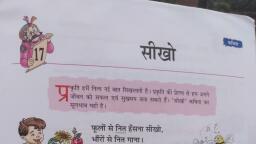 17
सीखो
कविता
प्रकृति हमें नित्य नई बात सिखलाती है। प्रकृति की प्रेरणा से हम अपने
जीवन को सफल एवं सुखमय बना सकते हैं। 'सीखो' कविता का
मूलभाव यही है।
फूलों से नित हँसना सीखो,
भौंरों से नित गाना।